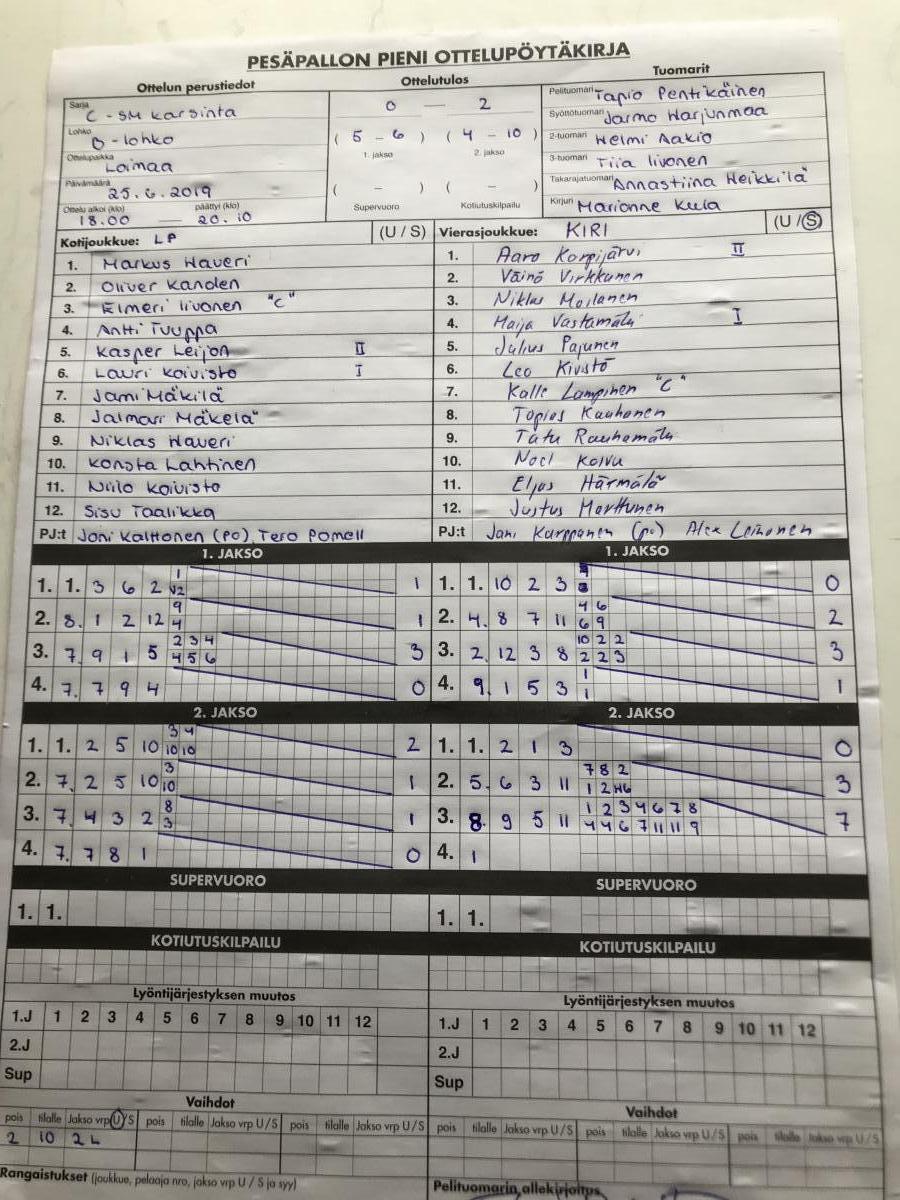 PESÄPALLON PIENI OTTELUPÖYTÄKIRJA
Ottelun perustiedot
Sarja C-SM karsinta
Lohko B-lohko
Ottelupaikka Loimaa
Päivämäärä 25.6.2019
Ottelu alkoi (klo) päättyi (klo)
18.00 — 20.10
Ottelutulos
0 — 2
( 5 - 6 ) ( 4 - 10 )
1. jakso 2. jakso
( - ) ( - )
Supervuoro Kotiutuskilpailu
Tuomarit
Pelituomari Tapio Pentikäinen
Syöttötuomari Jarmo Harjunmaa
2-tuomari Helmi Aakio
3-tuomari Tiia Iivonen
Takarajatuomari Annastiina Heikkilä
Kirjuri Marionne Keula
Kotijoukkue: LP (U / S)
1. Markus Haveri
2. Oliver Kanden
3. Elmeri Iivonen "C"
4. Antti Tuuppa
5. Kasper Leijon II
6. Lauri Koivisto I
7. Jami Mäkilä
8. Jalmari Mäkelä
9. Niklas Haveri
10. Konsta Lahtinen
11. Niilo Koivisto
12. Sisu Taalikka
PJ:t Joni Kalttonen (PO), Tero Pomell
Vierasjoukkue: KIRI (U / S)
1. Aaro Korpijärvi II
2. Väinö Virkkunen
3. Niklas Moilanen
4. Maija Vastamäki I
5. Julius Pajunen
6. Leo Kivistö
7. Kalle Lampinen "C"
8. Topias Kauhanen
9. Tatu Rauhamäki
10. Noel Koivu
11. Eljas Härmälä
12. Justus Marttunen
PJ:t Jani Karppanen (po) Alex Leinonen
1. JAKSO
1. 1. 3 6 2 1 1
12
2. 8. 1 2 12 9 1
4
3. 7. 9 1 5 2 3 4 3
4 5 6
4. 7. 7 9 4 0
1. JAKSO
1. 1. 10 2 3 0
2. 4. 8 7 11 4 6 2
6 9
3. 2. 12 3 8 10 2 2 3
2 2 3
4. 9. 1 5 3 1 1
1
2. JAKSO
1. 1. 2 5 10 3 4 2
10 10
2. 7. 2 5 10 3 1
10
3. 7. 4 3 2 8 1
3
4. 7. 7 8 1 0
2. JAKSO
1. 1. 2 1 3 0
2. 5. 6 3 11 7 8 2 3
1 2
3. 8. 9 5 11 1 2 3 4 6 7 8 7
4 4 6 7 11 11 9
4. 1
SUPERVUORO
1. 1.
SUPERVUORO
1. 1.
KOTIUTUSKILPAILU
KOTIUTUSKILPAILU
Lyöntijärjestyksen muutos
1.J 1 2 3 4 5 6 7 8 9 10 11 12
2.J
Sup
Lyöntijärjestyksen muutos
1.J 1 2 3 4 5 6 7 8 9 10 11 12
2.J
Sup
Vaihdot
pois tilalle Jakso vrp U/S pois tilalle Jakso vrp U/S pois tilalle Jakso vrp U/S
2 10 2 L
Vaihdot
pois tilalle Jakso vrp U/S pois tilalle Jakso vrp U/S pois tilalle Jakso vrp U/S
Rangaistukset (joukkue, pelaaja nro, jakso vrp U / S ja syy)
Pelituomarin allekirjoitus